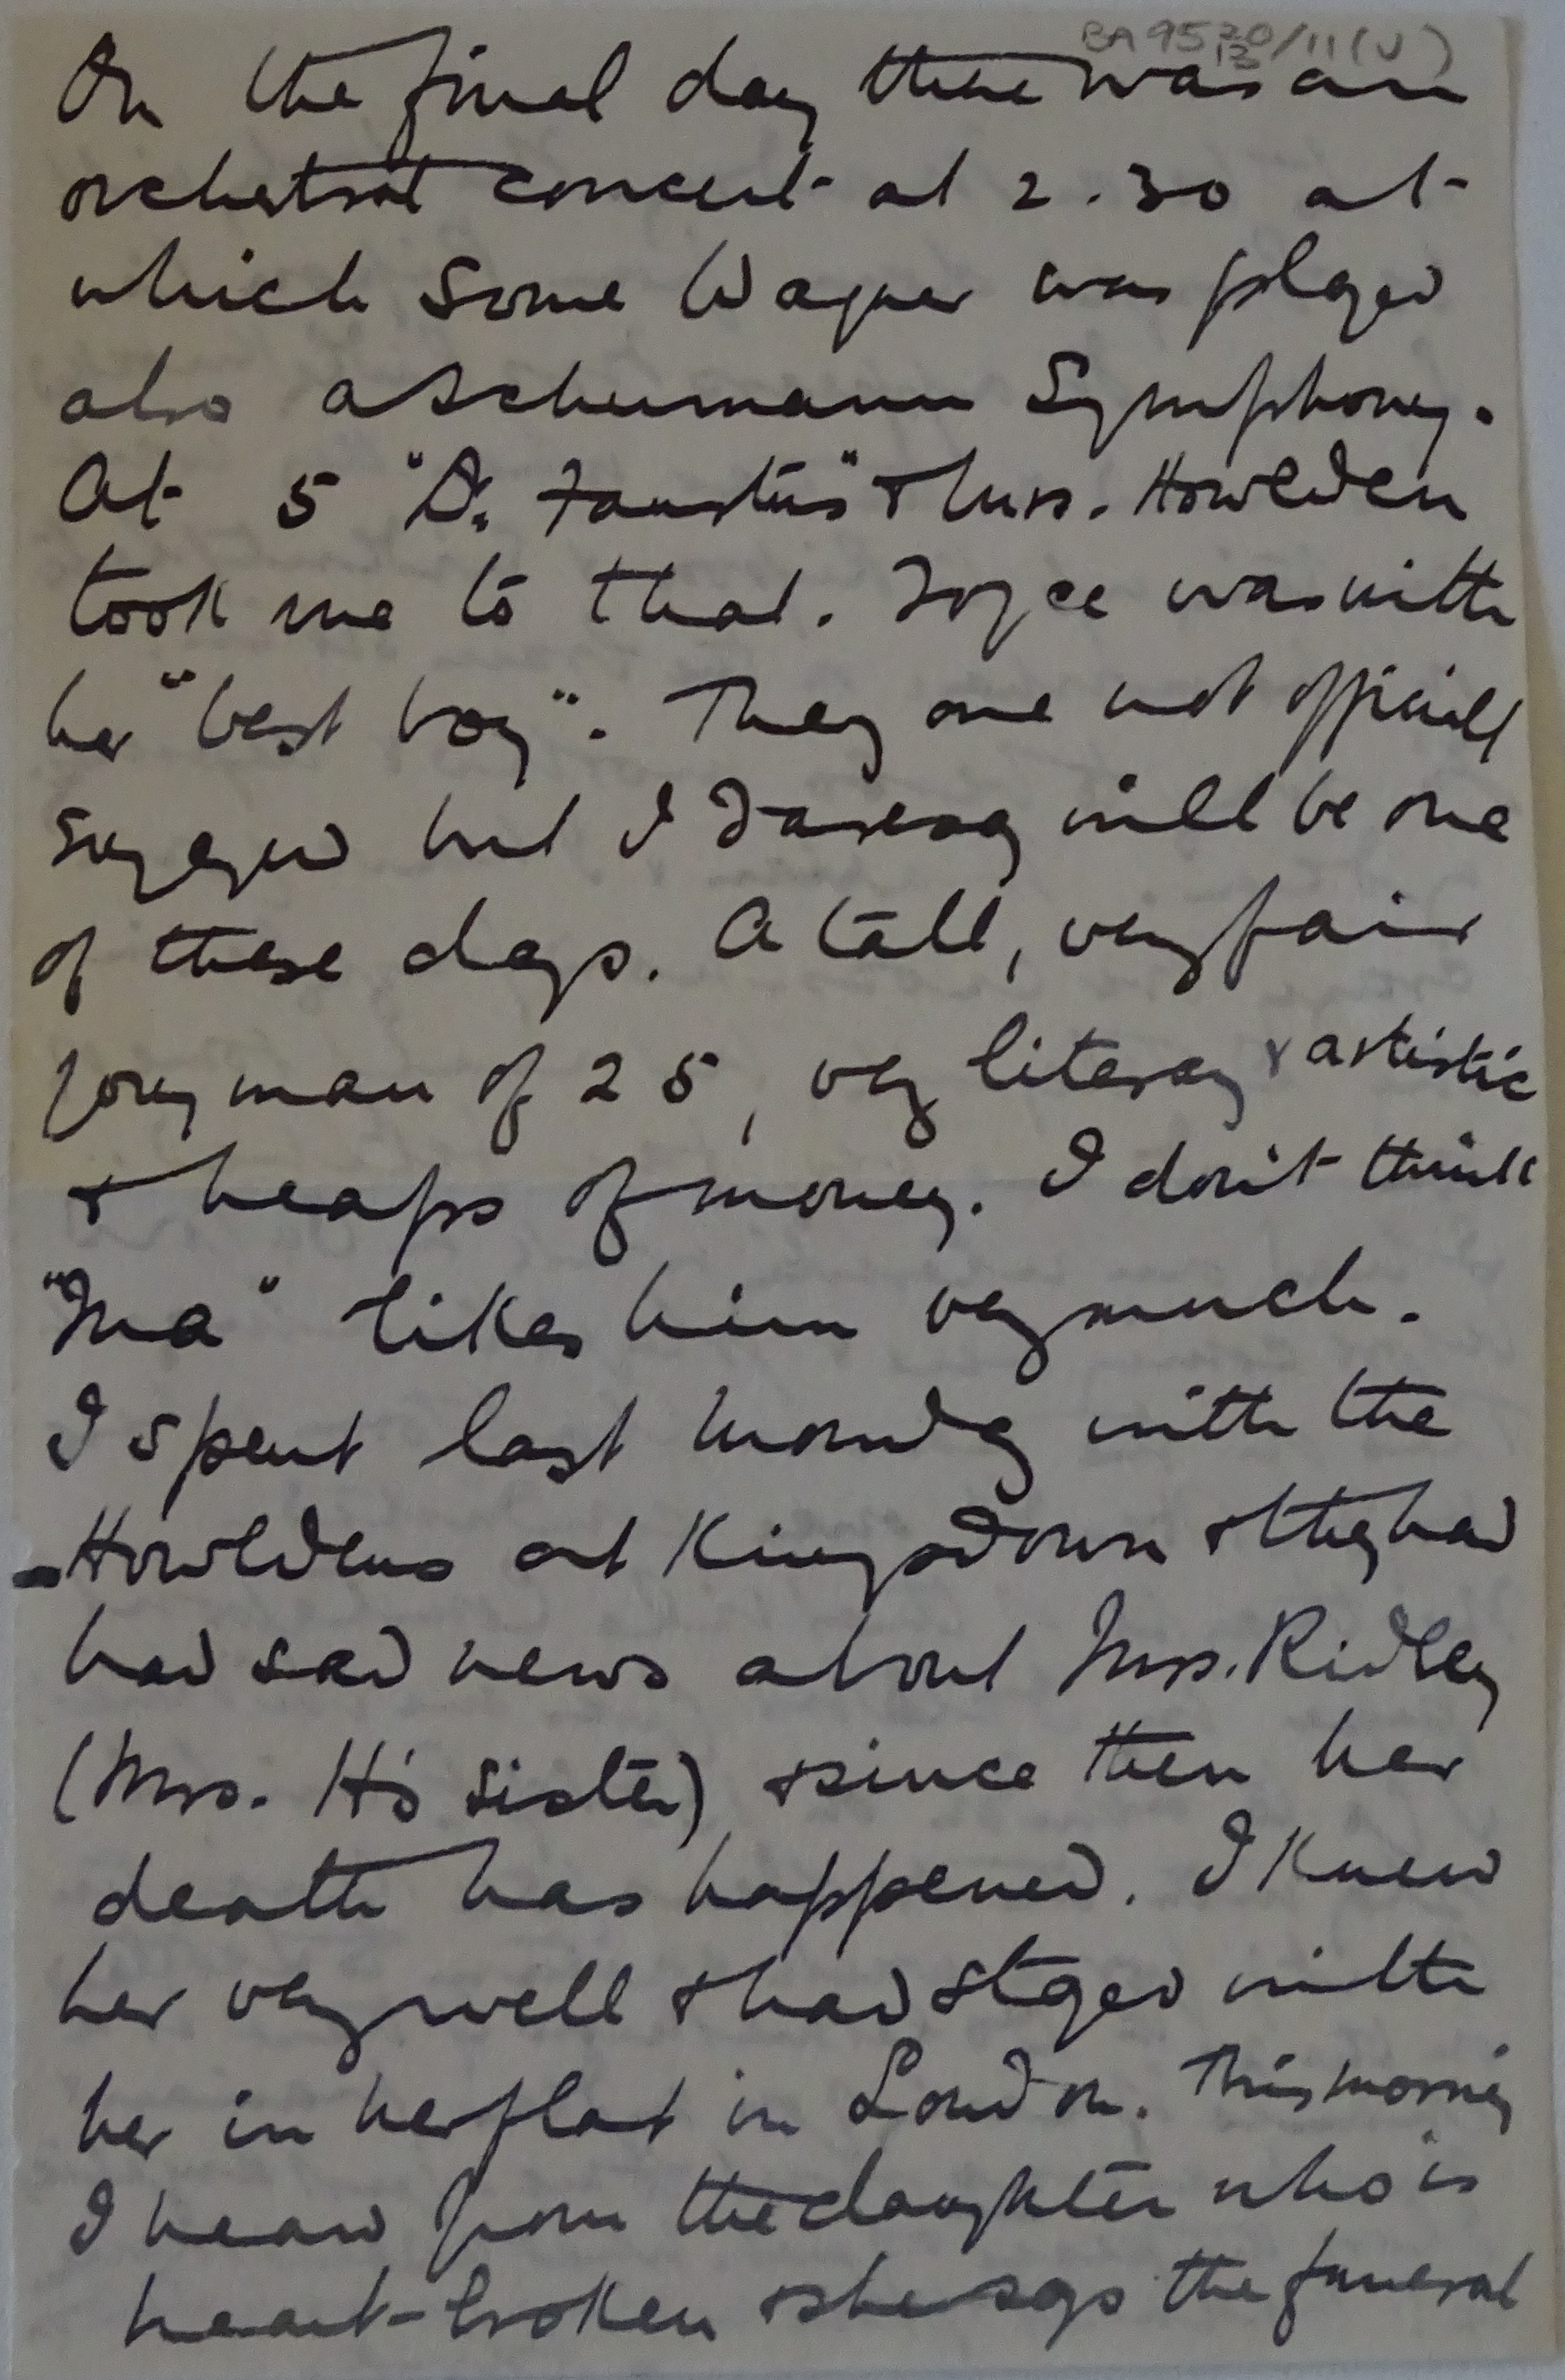 BA 9520/11(v)
13
On the final day there was an
orchestral concert at 2.30 at
which some Wagner was played
also a Schumann Symphony.
At 5 "Dr. Faustus" & Mrs. Howlden
took me to that. Joyce was with
her "best boy". They are not officially
engaged but I daresay will be one
of these days. A tall, very fair
young man of 25, very literary & artistic
& heaps of money. I don't think
"Ma" likes him very much.
I spent last Monday with the
Howldens at Kingsdown & they had
had sad news about Mrs. Ridley
(Mrs. H's sister) & since then her
death has happened. I knew
her very well & had stayed with
her in her flat in London. This morning
I heard from the daughter who is
heart-broken & she says the funeral